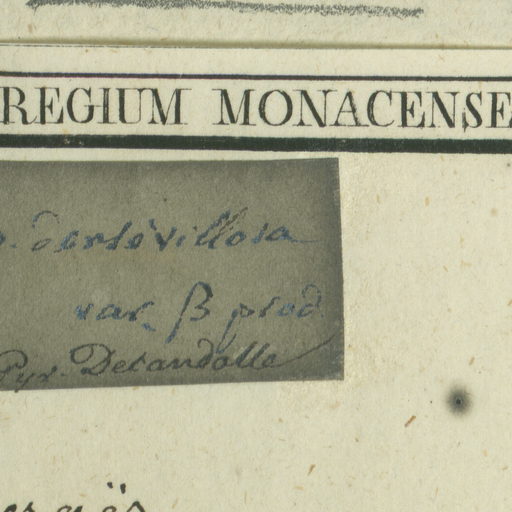 REGIUM MONACENSE
densevillosa
var. β prod
Pyr. Decandolle